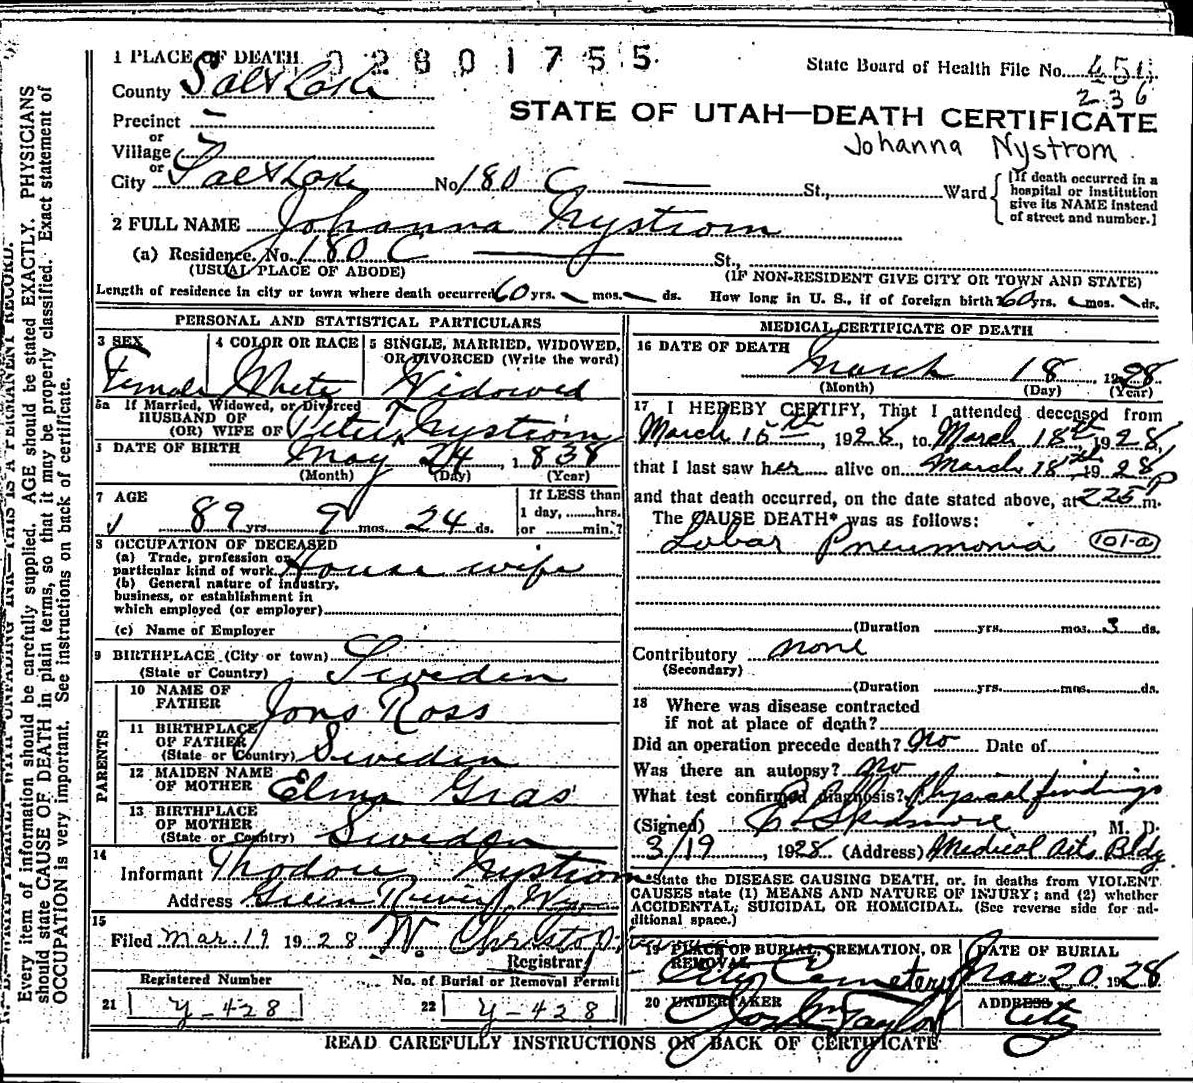 1 PLACE OF DEATH 02801755
State Board of Health File No. 454
236
County Salt Lake
STATE OF UTAH—DEATH CERTIFICATE
Johanna Nystrom
Precinct —
or
Village —
or
City Salt Lake No. 180 C — St., Ward
[If death occurred in a hospital or institution give its NAME instead of street and number.]
2 FULL NAME Johanna Nystrom
(a) Residence. No. 180 C — St.,
(USUAL PLACE OF ABODE) (IF NON-RESIDENT GIVE CITY OR TOWN AND STATE)
Length of residence in city or town where death occurred 60 yrs. — mos. — ds. How long in U. S., if of foreign birth? 60 yrs. — mos. — ds.
PERSONAL AND STATISTICAL PARTICULARS
3 SEX
Female
4 COLOR OR RACE
White
5 SINGLE, MARRIED, WIDOWED, OR DIVORCED (Write the word)
Widowed
5a If Married, Widowed, or Divorced
HUSBAND OF
(OR) WIFE OF Peter Nystrom
DATE OF BIRTH May 24, 1838
(Month) (Day) (Year)
7 AGE
89 yrs 9 mos. 24 ds.
If LESS than
1 day, hrs.
or min.?
8 OCCUPATION OF DECEASED
(a) Trade, profession or
particular kind of work House wife
(b) General nature of industry,
business, or establishment in
which employed (or employer)
(c) Name of Employer
9 BIRTHPLACE (City or town)
(State or Country) Sweden
PARENTS
10 NAME OF
FATHER Jons Ross
11 BIRTHPLACE
OF FATHER
(State or Country) Sweden
12 MAIDEN NAME
OF MOTHER Elna Gras
13 BIRTHPLACE
OF MOTHER
(State or Country) Sweden
14
Informant Thodore Nystrom
Address Green River, Wyo
15
Filed Mar. 19 1928 W. Christo
Registrar
Registered Number No. of Burial or Removal Permit
21 y-428 22 y-428
MEDICAL CERTIFICATE OF DEATH
16 DATE OF DEATH
March 18 1928
(Month) (Day) (Year)
17 I HEREBY CERTIFY, That I attended deceased from
March 16th, 1928, to March 18th 1928,
that I last saw her alive on March 18th 1928,
and that death occurred, on the date stated above, at 225 P m.
The CAUSE DEATH* was as follows:
Lobar Pneumonia 101-a
(Duration yrs. mos. 3 ds.
Contributory none
(Secondary)
(Duration yrs. mos. ds.
18 Where was disease contracted
if not at place of death?
Did an operation precede death? No Date of
Was there an autopsy? No
What test confirmed diagnosis? Physical findings
(Signed) Skidmore M. D.
3/19, 1928 (Address) Medical Arts Bldg.
*State the DISEASE CAUSING DEATH, or, in deaths from VIOLENT
CAUSES state (1) MEANS AND NATURE OF INJURY; and (2) whether
ACCIDENTAL, SUICIDAL OR HOMICIDAL. (See reverse side for ad-
ditional space.)
19 PLACE OF BURIAL, CREMATION, OR
REMOVAL
City Cemetery
DATE OF BURIAL
Mar 20 1928
20 UNDERTAKER
Jos. Wm Taylor
ADDRESS
City
READ CAREFULLY INSTRUCTIONS ON BACK OF CERTIFICATE
Every item of information should be carefully supplied. AGE should be stated EXACTLY. PHYSICIANS
should state CAUSE OF DEATH in plain terms, so that it may be properly classified. Exact statement of
OCCUPATION is very important. See instructions on back of certificate.